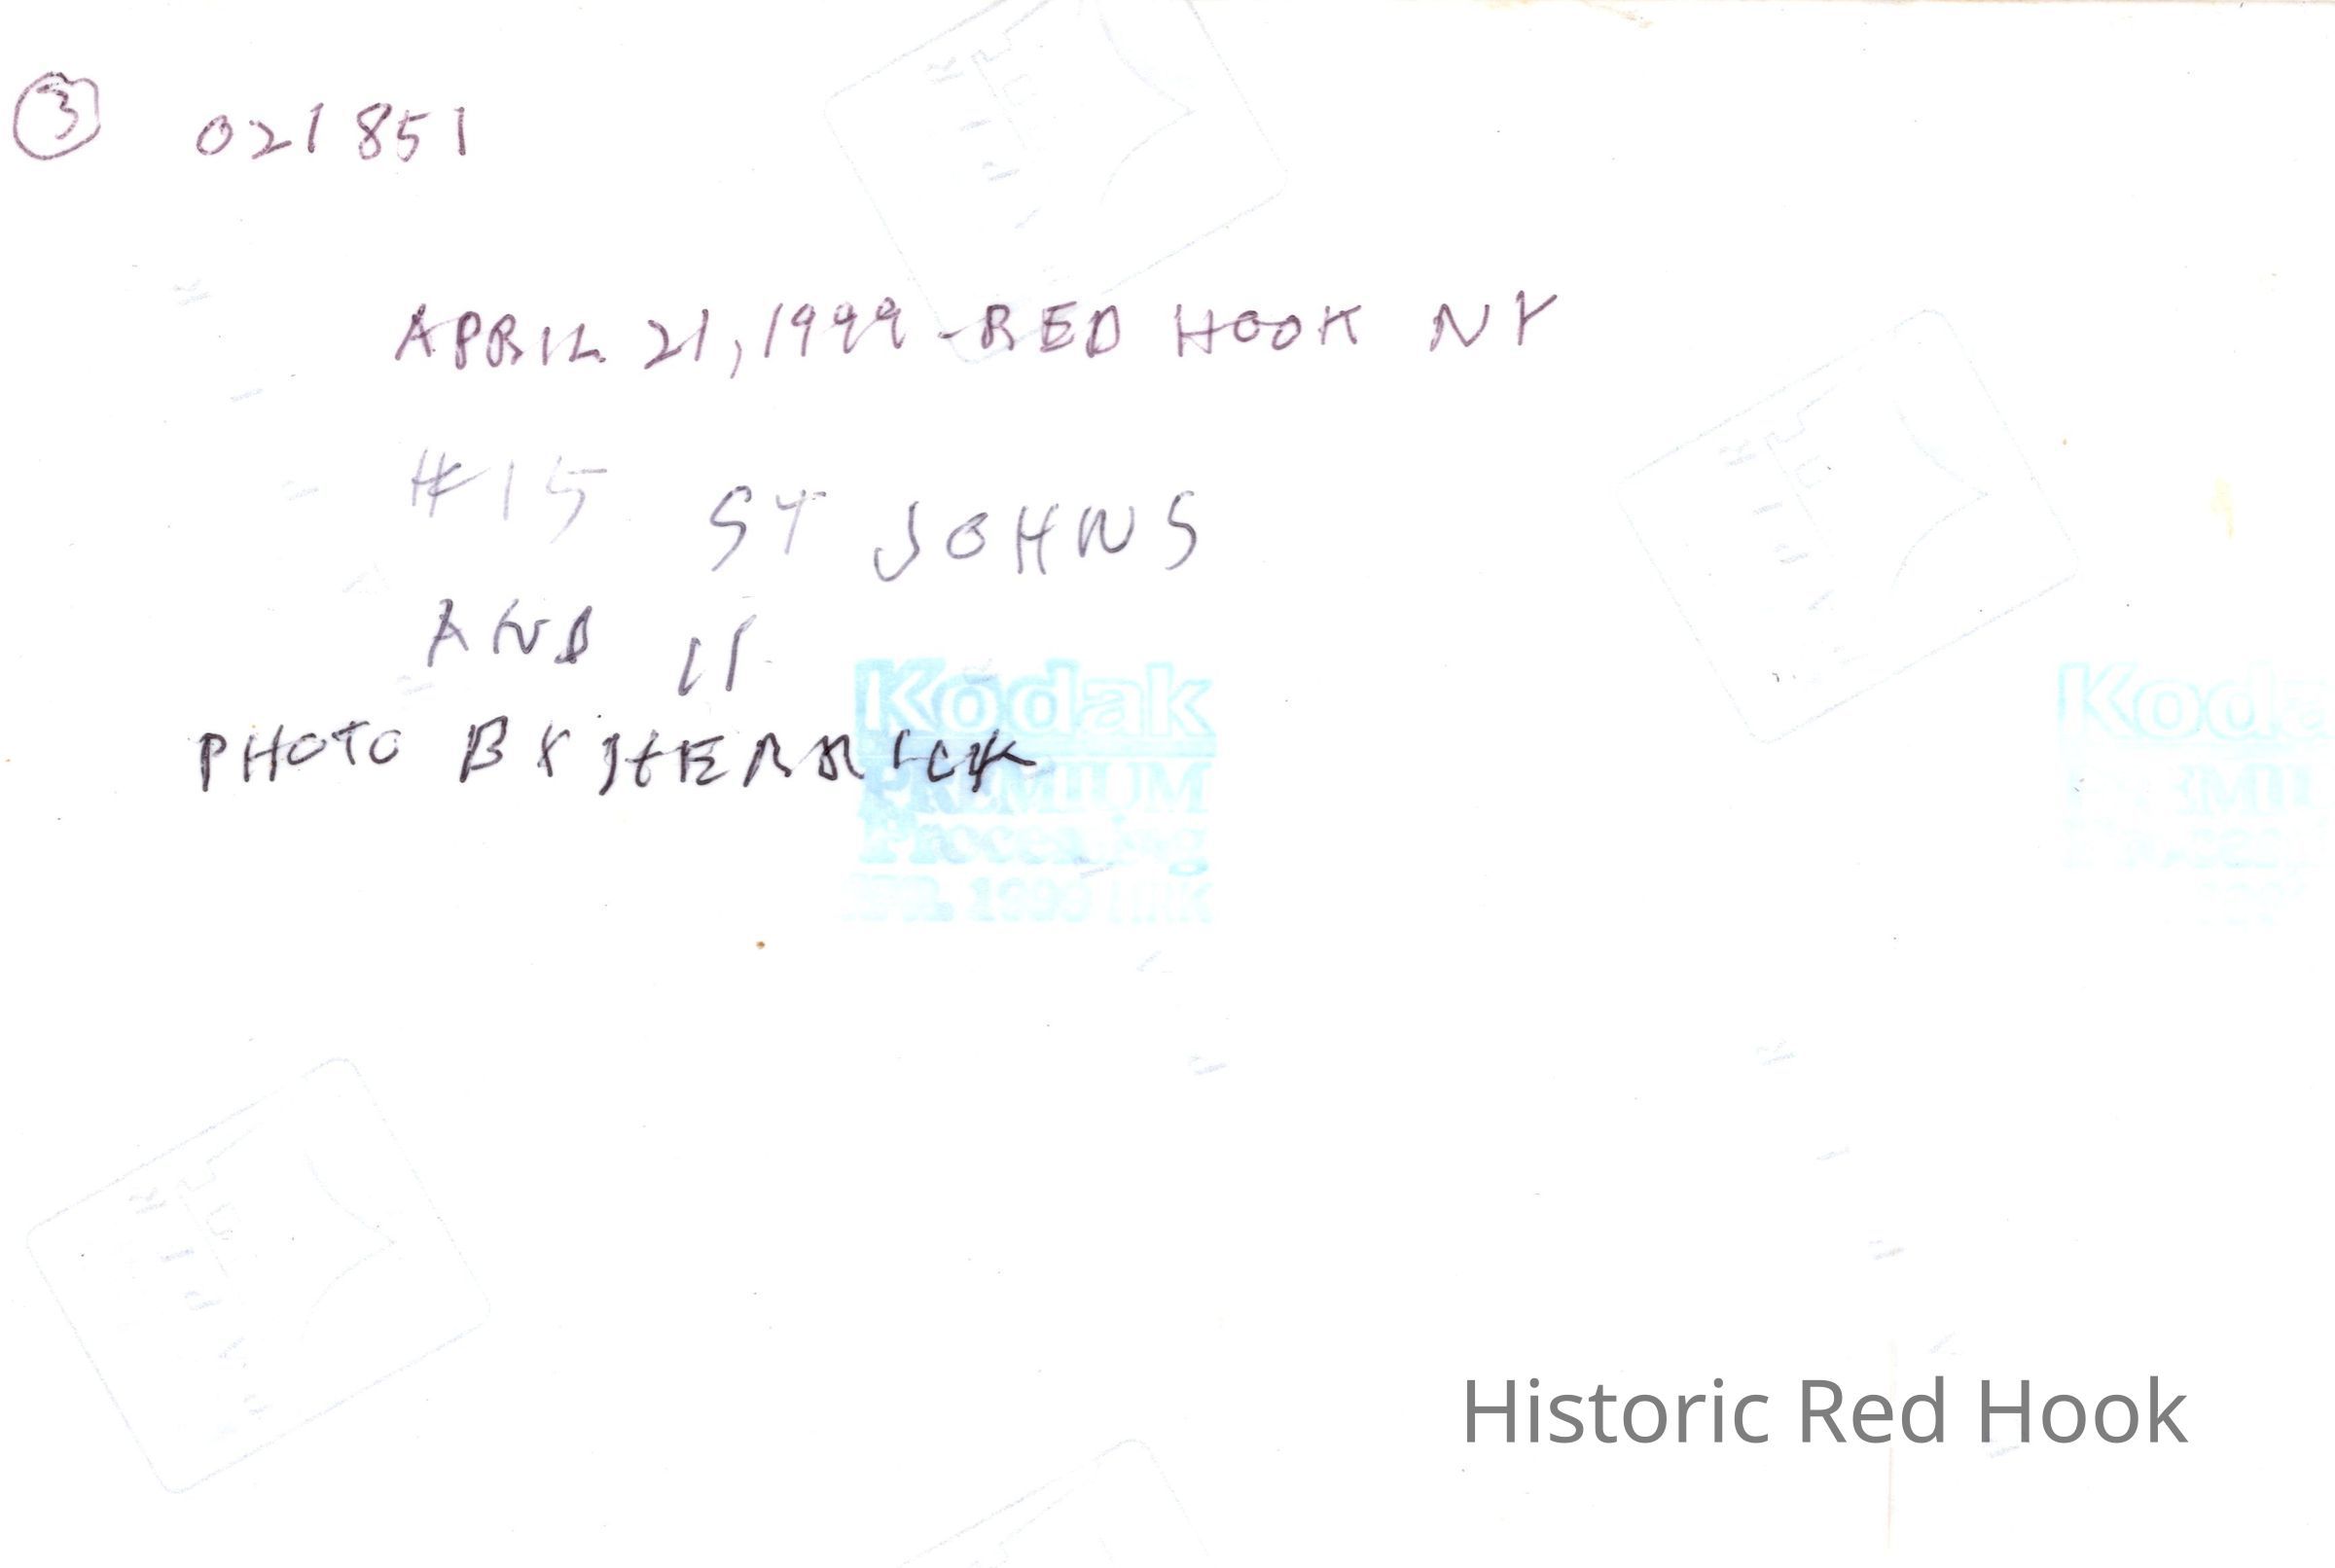 ③ 021851
APRIL 21, 1999 - RED HOOK NY
#15 ST JOHNS
AND 11
PHOTO BY HERRICK
Kodak
PREMIUM
Processing
1999
Koda
Historic Red Hook